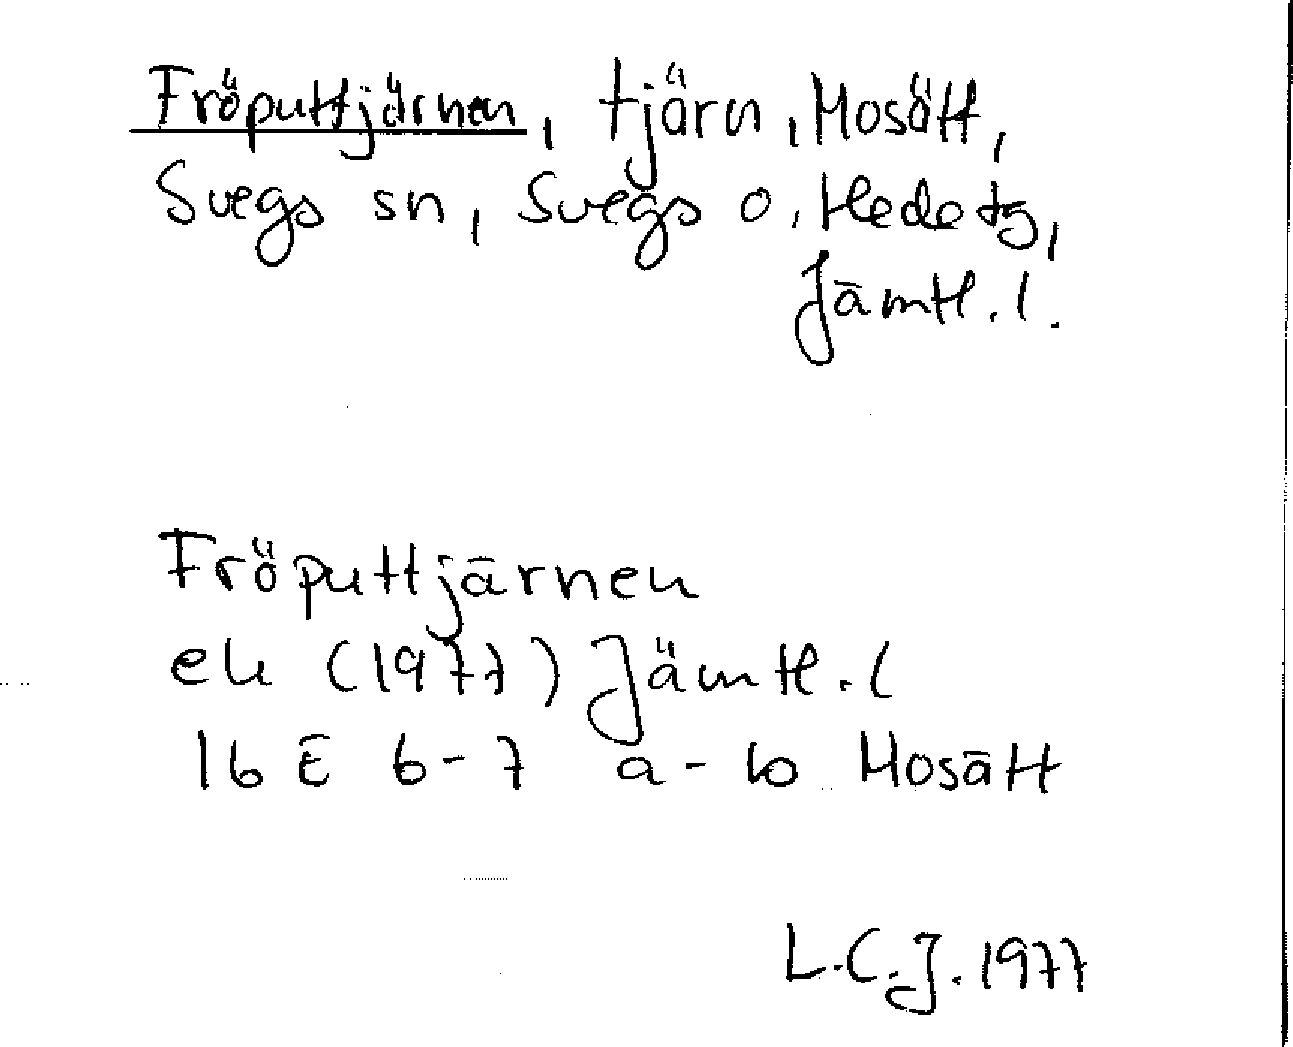 Fröputtjärnen, tjärn, Mosätt,
Svegs sn, Svegs o. Hede tg,
Jämtl. l.
Fröputtjärnen
ek (1977) Jämtl. l
16 E 6-7 a-b Mosätt
L.C.J. 1977